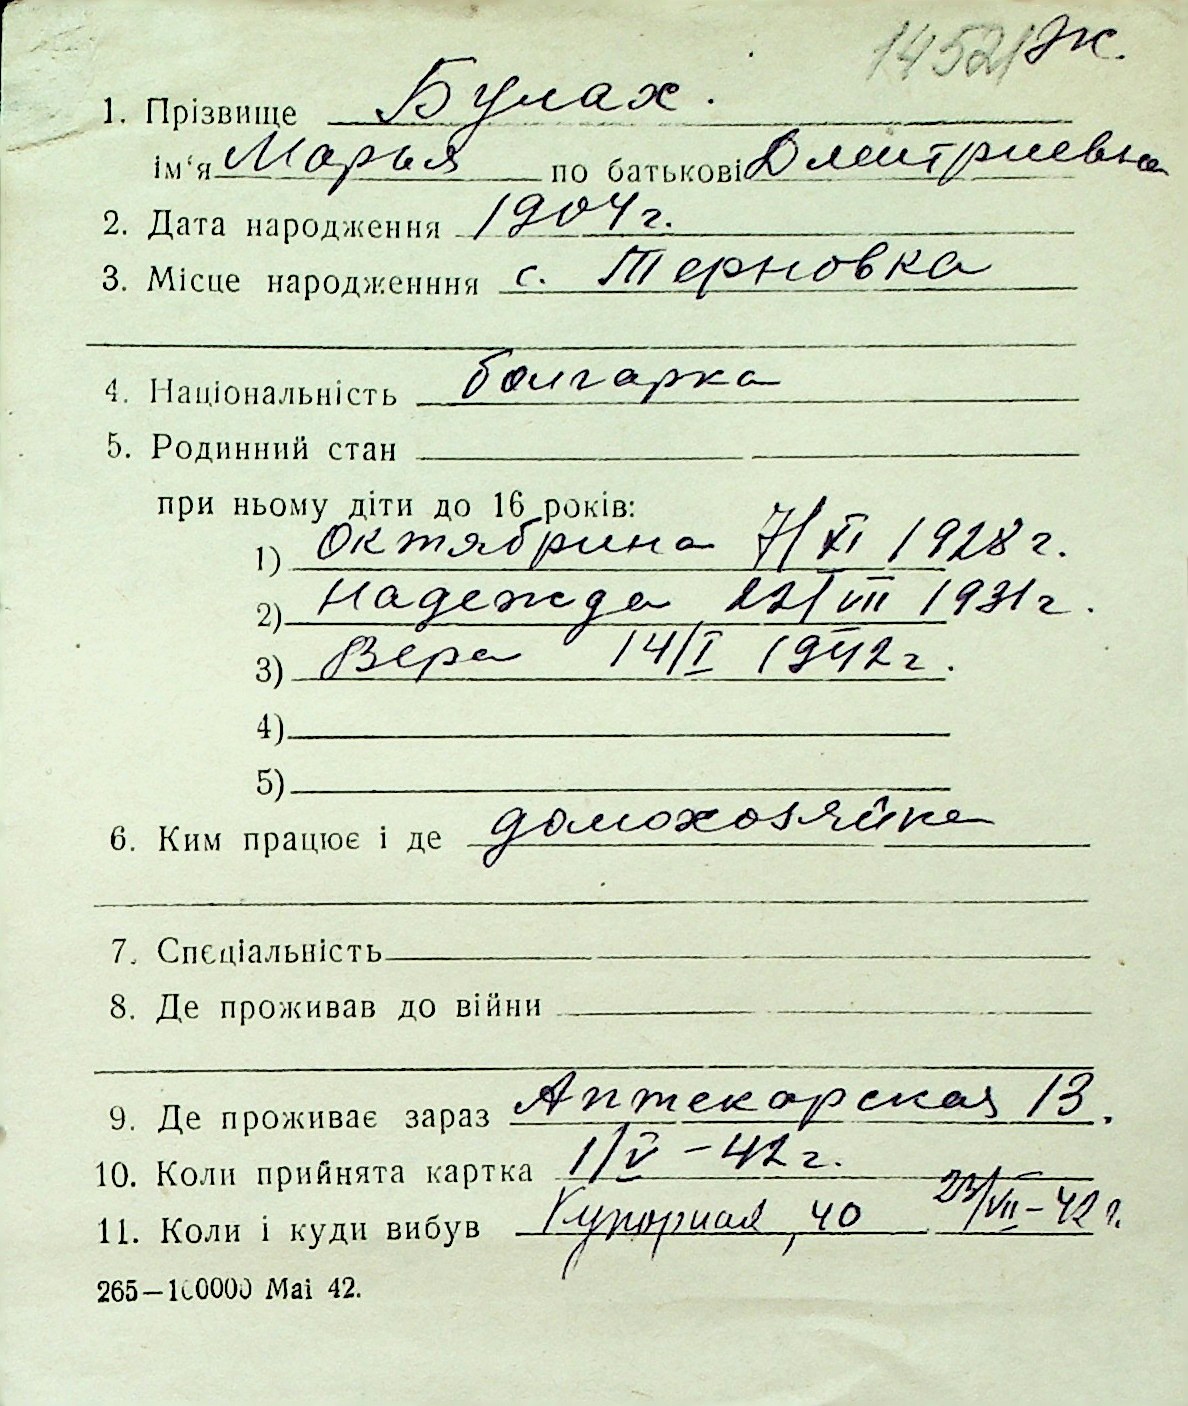 14521 Ж.
1. Прізвище Булах.
ім‘я Марья по батькові Дмитриевна
2. Дата народження 1904 г.
3. Місце народженння с. Терновка
4. Національність болгарка
5. Родинний стан
при ньому діти до 16 років:
1) Октябрина 7/XI 1928 г.
2) Надежда 22/VII 1931 г.
3) Вера 14/I 1942 г.
4)
5)
6. Ким працює і де домохозяйка
7. Спєціальність
8. Де проживав до війни
9. Де проживає зараз Аптекарская 13.
10. Коли прийнята картка 1/V – 42 г.
11. Коли і куди вибув 40 23/VII – 42 г.
265—100000 Маі 42.